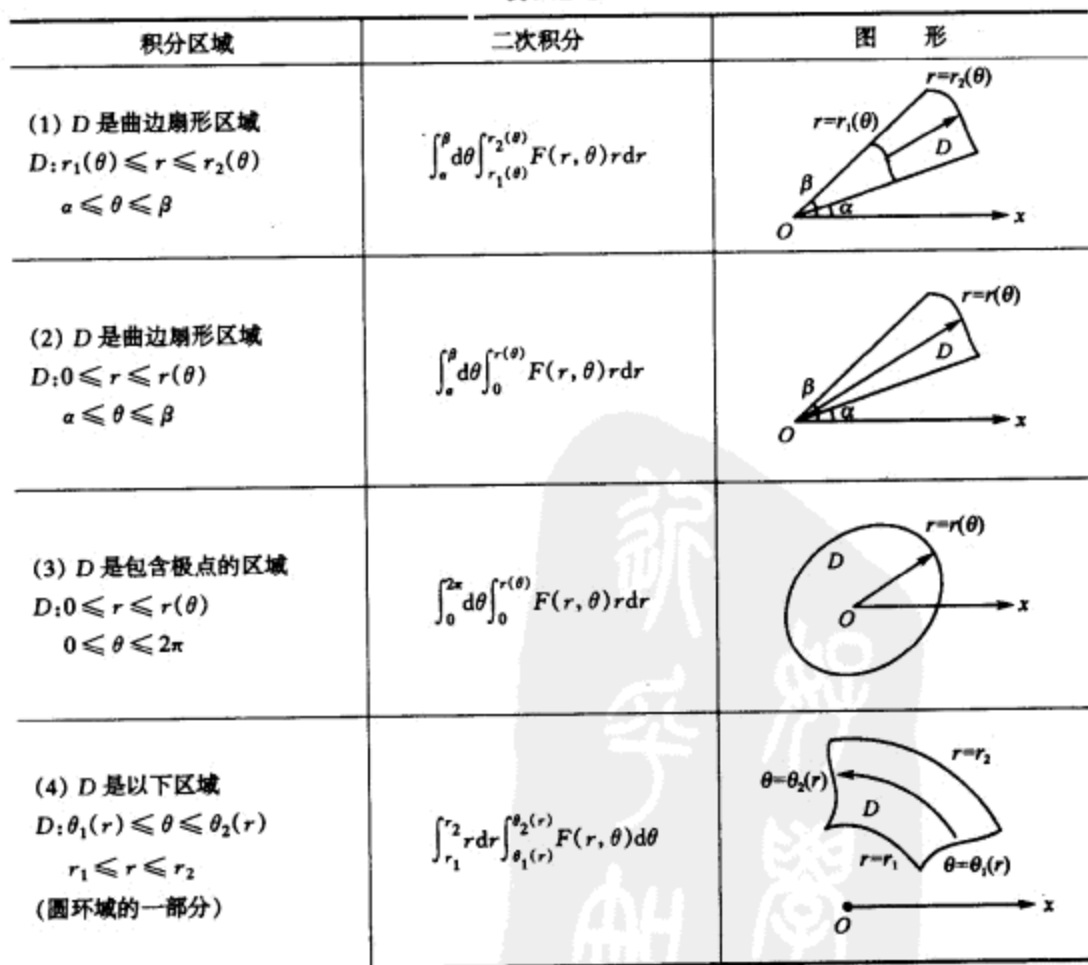 积分区域 二次积分 图 形
(1) D 是曲边扇形区域
D:r₁(θ)⩽r⩽r₂(θ)
α⩽θ⩽β
∫_α^β dθ∫_{r₁(θ)}^{r₂(θ)} F(r,θ)rdr
r=r₂(θ)
r=r₁(θ)
D
β
α
O
x
(2) D 是曲边扇形区域
D:0⩽r⩽r(θ)
α⩽θ⩽β
∫_α^β dθ∫_0^{r(θ)} F(r,θ)rdr
r=r(θ)
D
β
α
O
x
(3) D 是包含极点的区域
D:0⩽r⩽r(θ)
0⩽θ⩽2π
∫_0^{2π} dθ∫_0^{r(θ)} F(r,θ)rdr
r=r(θ)
D
O
x
(4) D 是以下区域
D:θ₁(r)⩽θ⩽θ₂(r)
r₁⩽r⩽r₂
(圆环域的一部分)
∫_{r₁}^{r₂} rdr∫_{θ₁(r)}^{θ₂(r)} F(r,θ)dθ
r=r₂
θ=θ₂(r)
D
r=r₁
θ=θ₁(r)
O
x